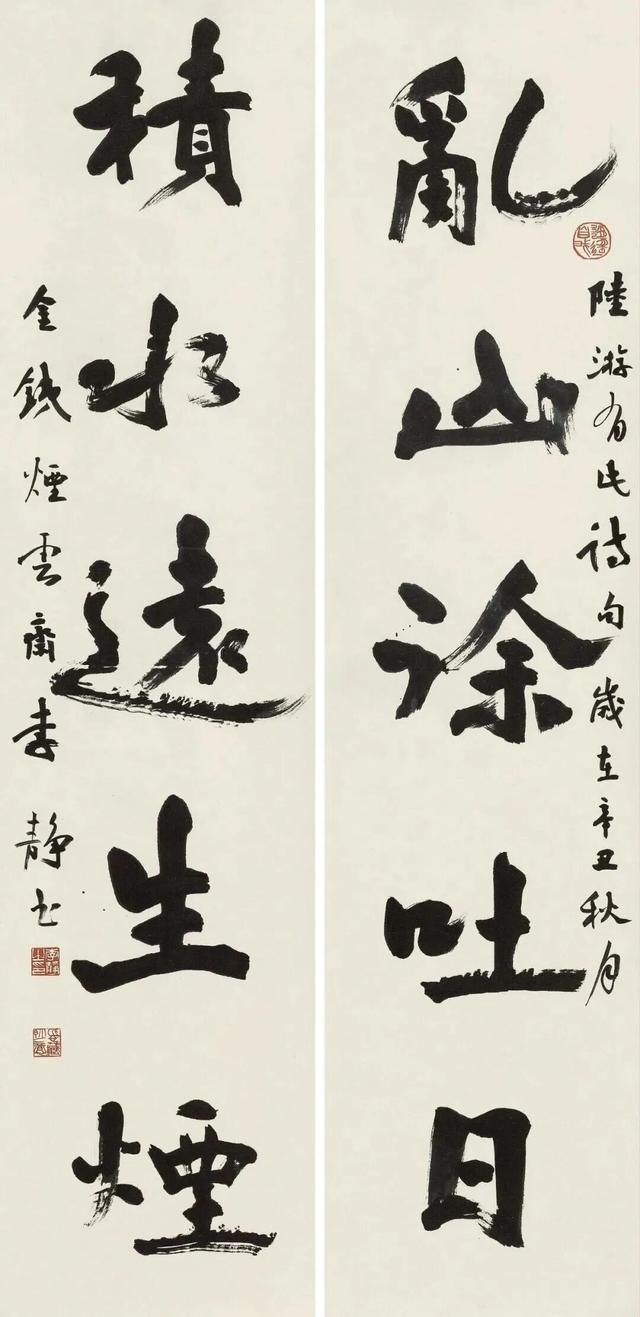 亂山徐吐日
陸游有此詩句歲在辛丑秋月
積水遠生煙
金鐵煙雲齋李靜書